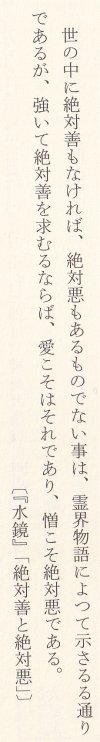 世の中に絶対善もなければ、絶対悪もあるものでない事は、霊界物語によつて示さるる通り
であるが、強いて絶対善を求むるならば、愛こそはそれであり、憎こそ絶対悪である。
〔『水鏡』「絶対善と絶対悪」〕